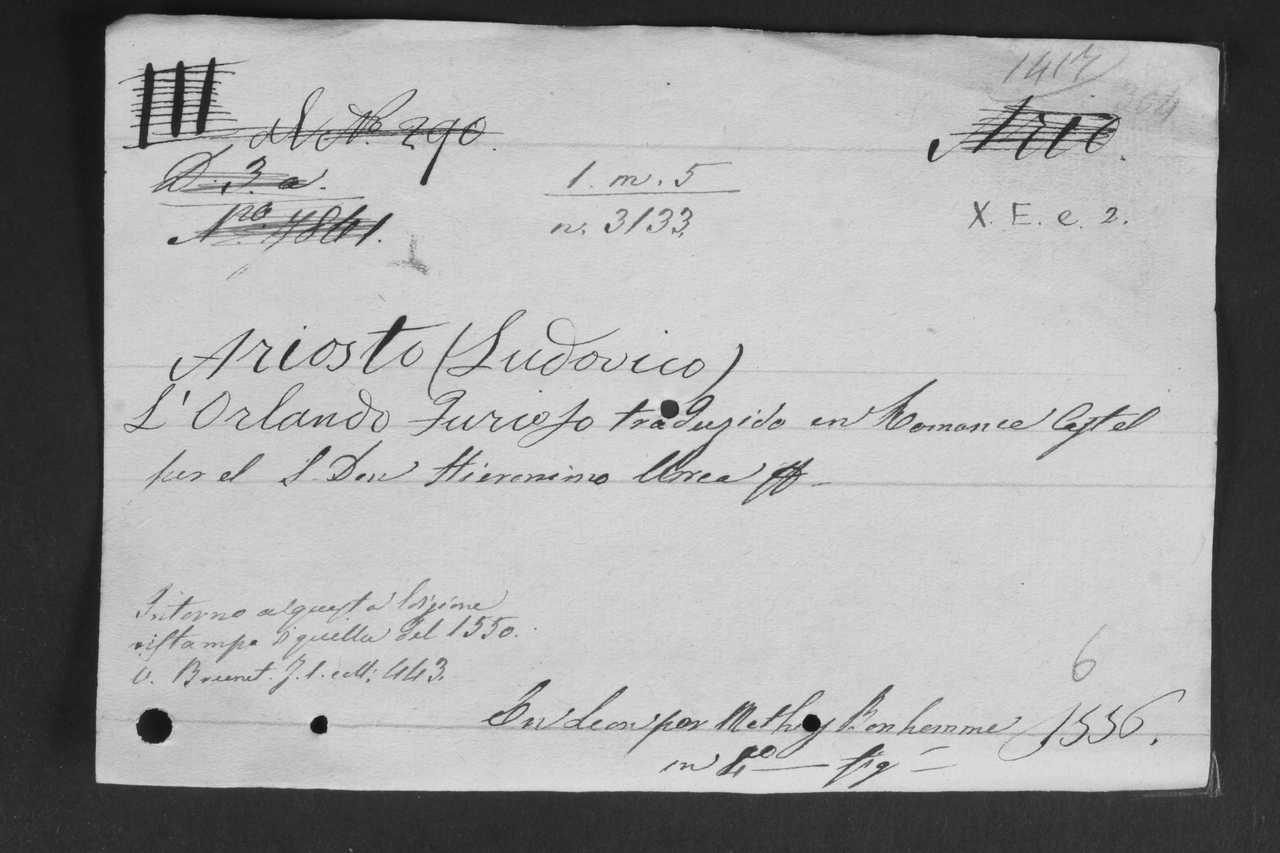 1417
304
III
N.º 290.
Ario.
D. 3. a.
1. m. 5
Nro 7841.
n. 3133.
X. E. e. 2.
Ariosto (Ludovico)
L'Orlando Furioso traduzido en Romance Castel
per el S. Don Hieronimo Urrea
Intorno a questa edizione
ristampa di quella del 1550.
v. Brunet. T. 1. col. 443.
6
En Leon por Mathis Bonhomme 1556.
in 4to — fig —